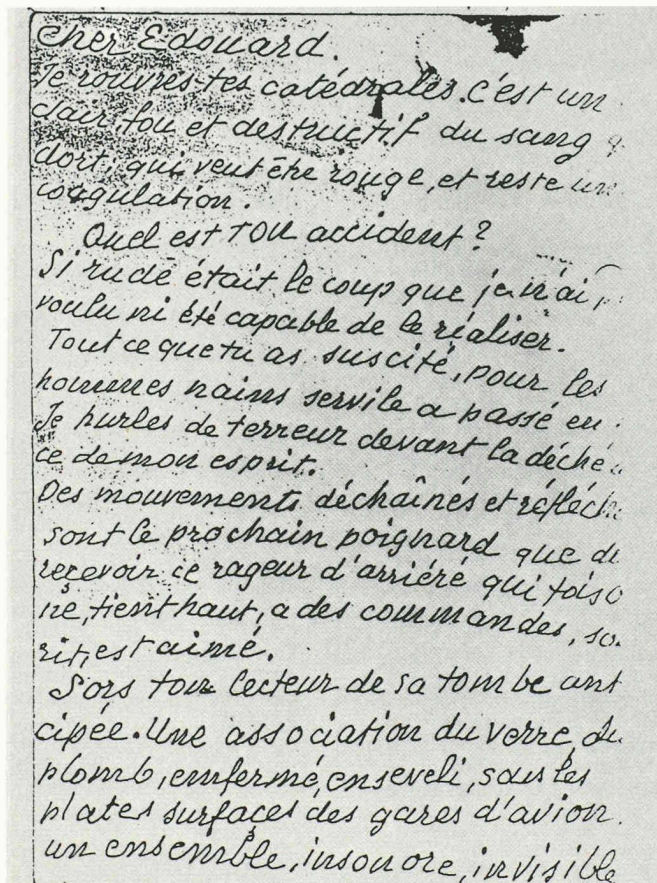 Cher Edouard.
Je rouvres tes catédrales. c'est un
clair, fou et destructif du sang q
dort, qui veut être rouge, et reste une
coagulation.
Quel est TON accident?
Si rude était le coup que je n'ai p
voulu ni été capable de le réaliser.
Tout ce que tu as suscité, pour les
hommes nains servile a passé en
Je hurles de terreur devant la déché
ce de mon esprit.
Des mouvements déchaînés et réfléch
sont le prochain poignard que d
recevoir ce rageur d'arriéré qui foiso
ne, tient haut, a des commandes, so
rit, est aimé.
Sors ton lecteur de sa tombe ant
cipée. Une association du verre, du
plomb, enfermé, enseveli, sous les
plates surfaces des gares d'avion.
un ensemble, insonore, invisible